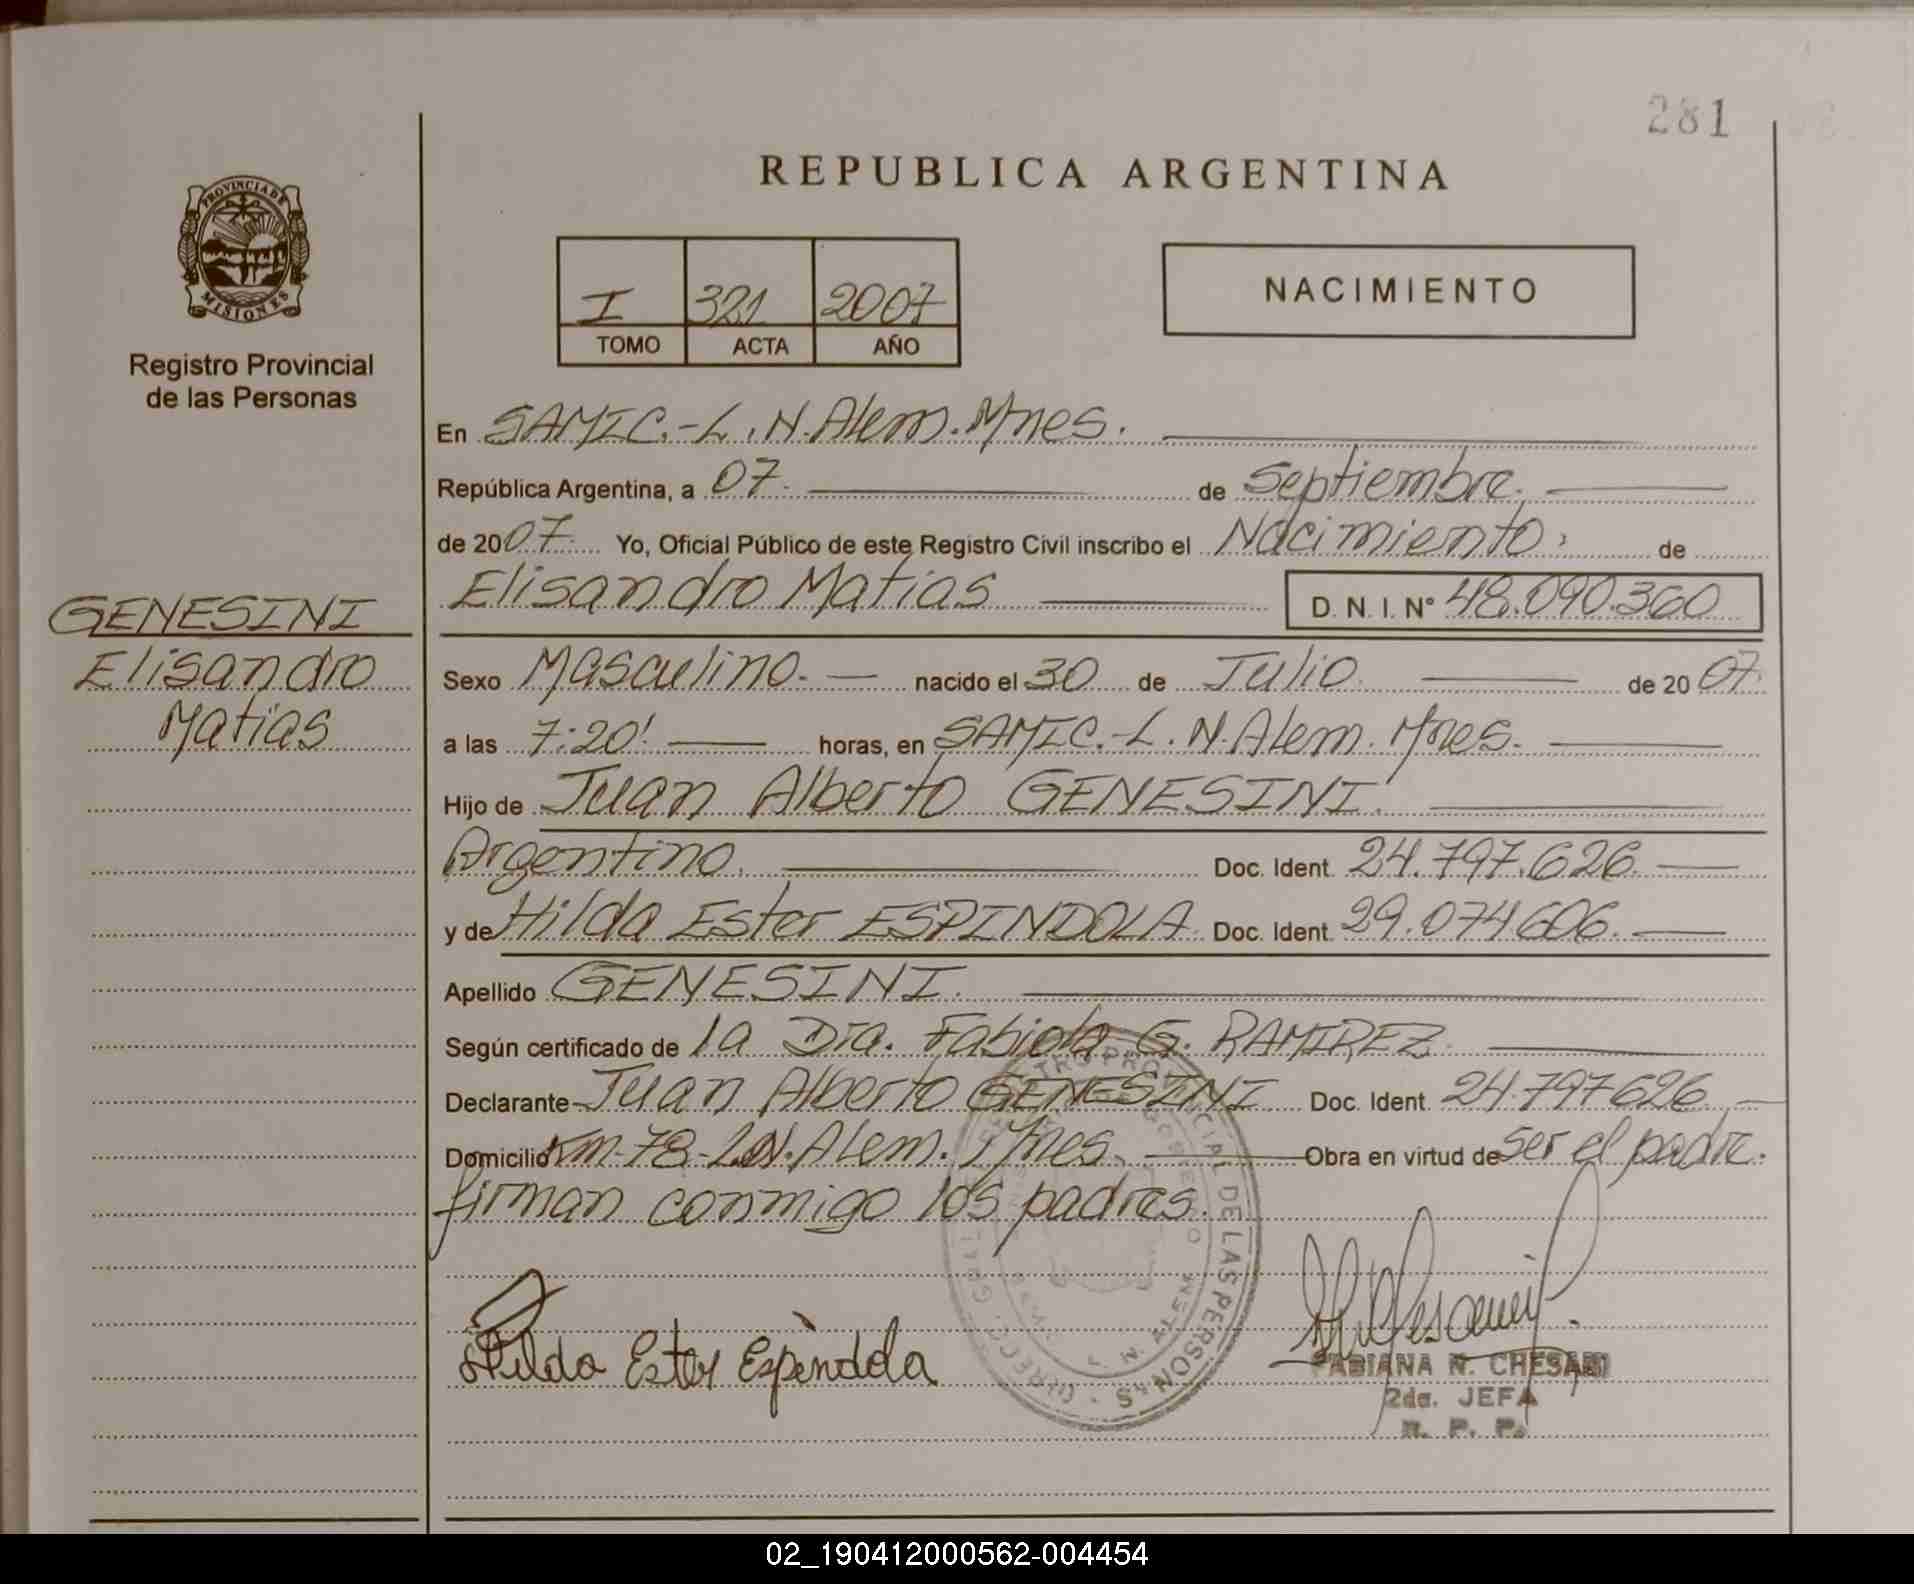 281
REPUBLICA ARGENTINA
PROVINCIA DE
MISIONES
Registro Provincial
de las Personas
I 321 2007
TOMO ACTA AÑO
NACIMIENTO
En SAMIC.-L.N.Alem.Mnes.
República Argentina, a 07. de Septiembre.
de 2007. Yo, Oficial Público de este Registro Civil inscribo el Nacimiento de
Elisandro Matias D. N. I. Nº 48.090.360
GENESINI
Elisandro
Matias
Sexo Masculino. nacido el 30 de Julio de 2007.
a las 7:20' horas, en SAMIC.-L.N.Alem.Mnes.
Hijo de Juan Alberto GENESINI.
Argentino. Doc. Ident. 24.797.626.
y de Hilda Ester ESPINDOLA. Doc. Ident. 29.074.606.
Apellido GENESINI.
Según certificado de la Dra. Fabiola G. RAMIREZ.
Declarante Juan Alberto GENESINI Doc. Ident. 24.797.626
Domicilio Km-78-L.N.Alem. Mnes. Obra en virtud de ser el padre.
firman conmigo los padres.
Hilda Ester Espindola
REGISTRO PROVINCIAL DE LAS PERSONAS
FABIANA N. CHESANI
2da. JEFA
R. P. P.
02_190412000562-004454